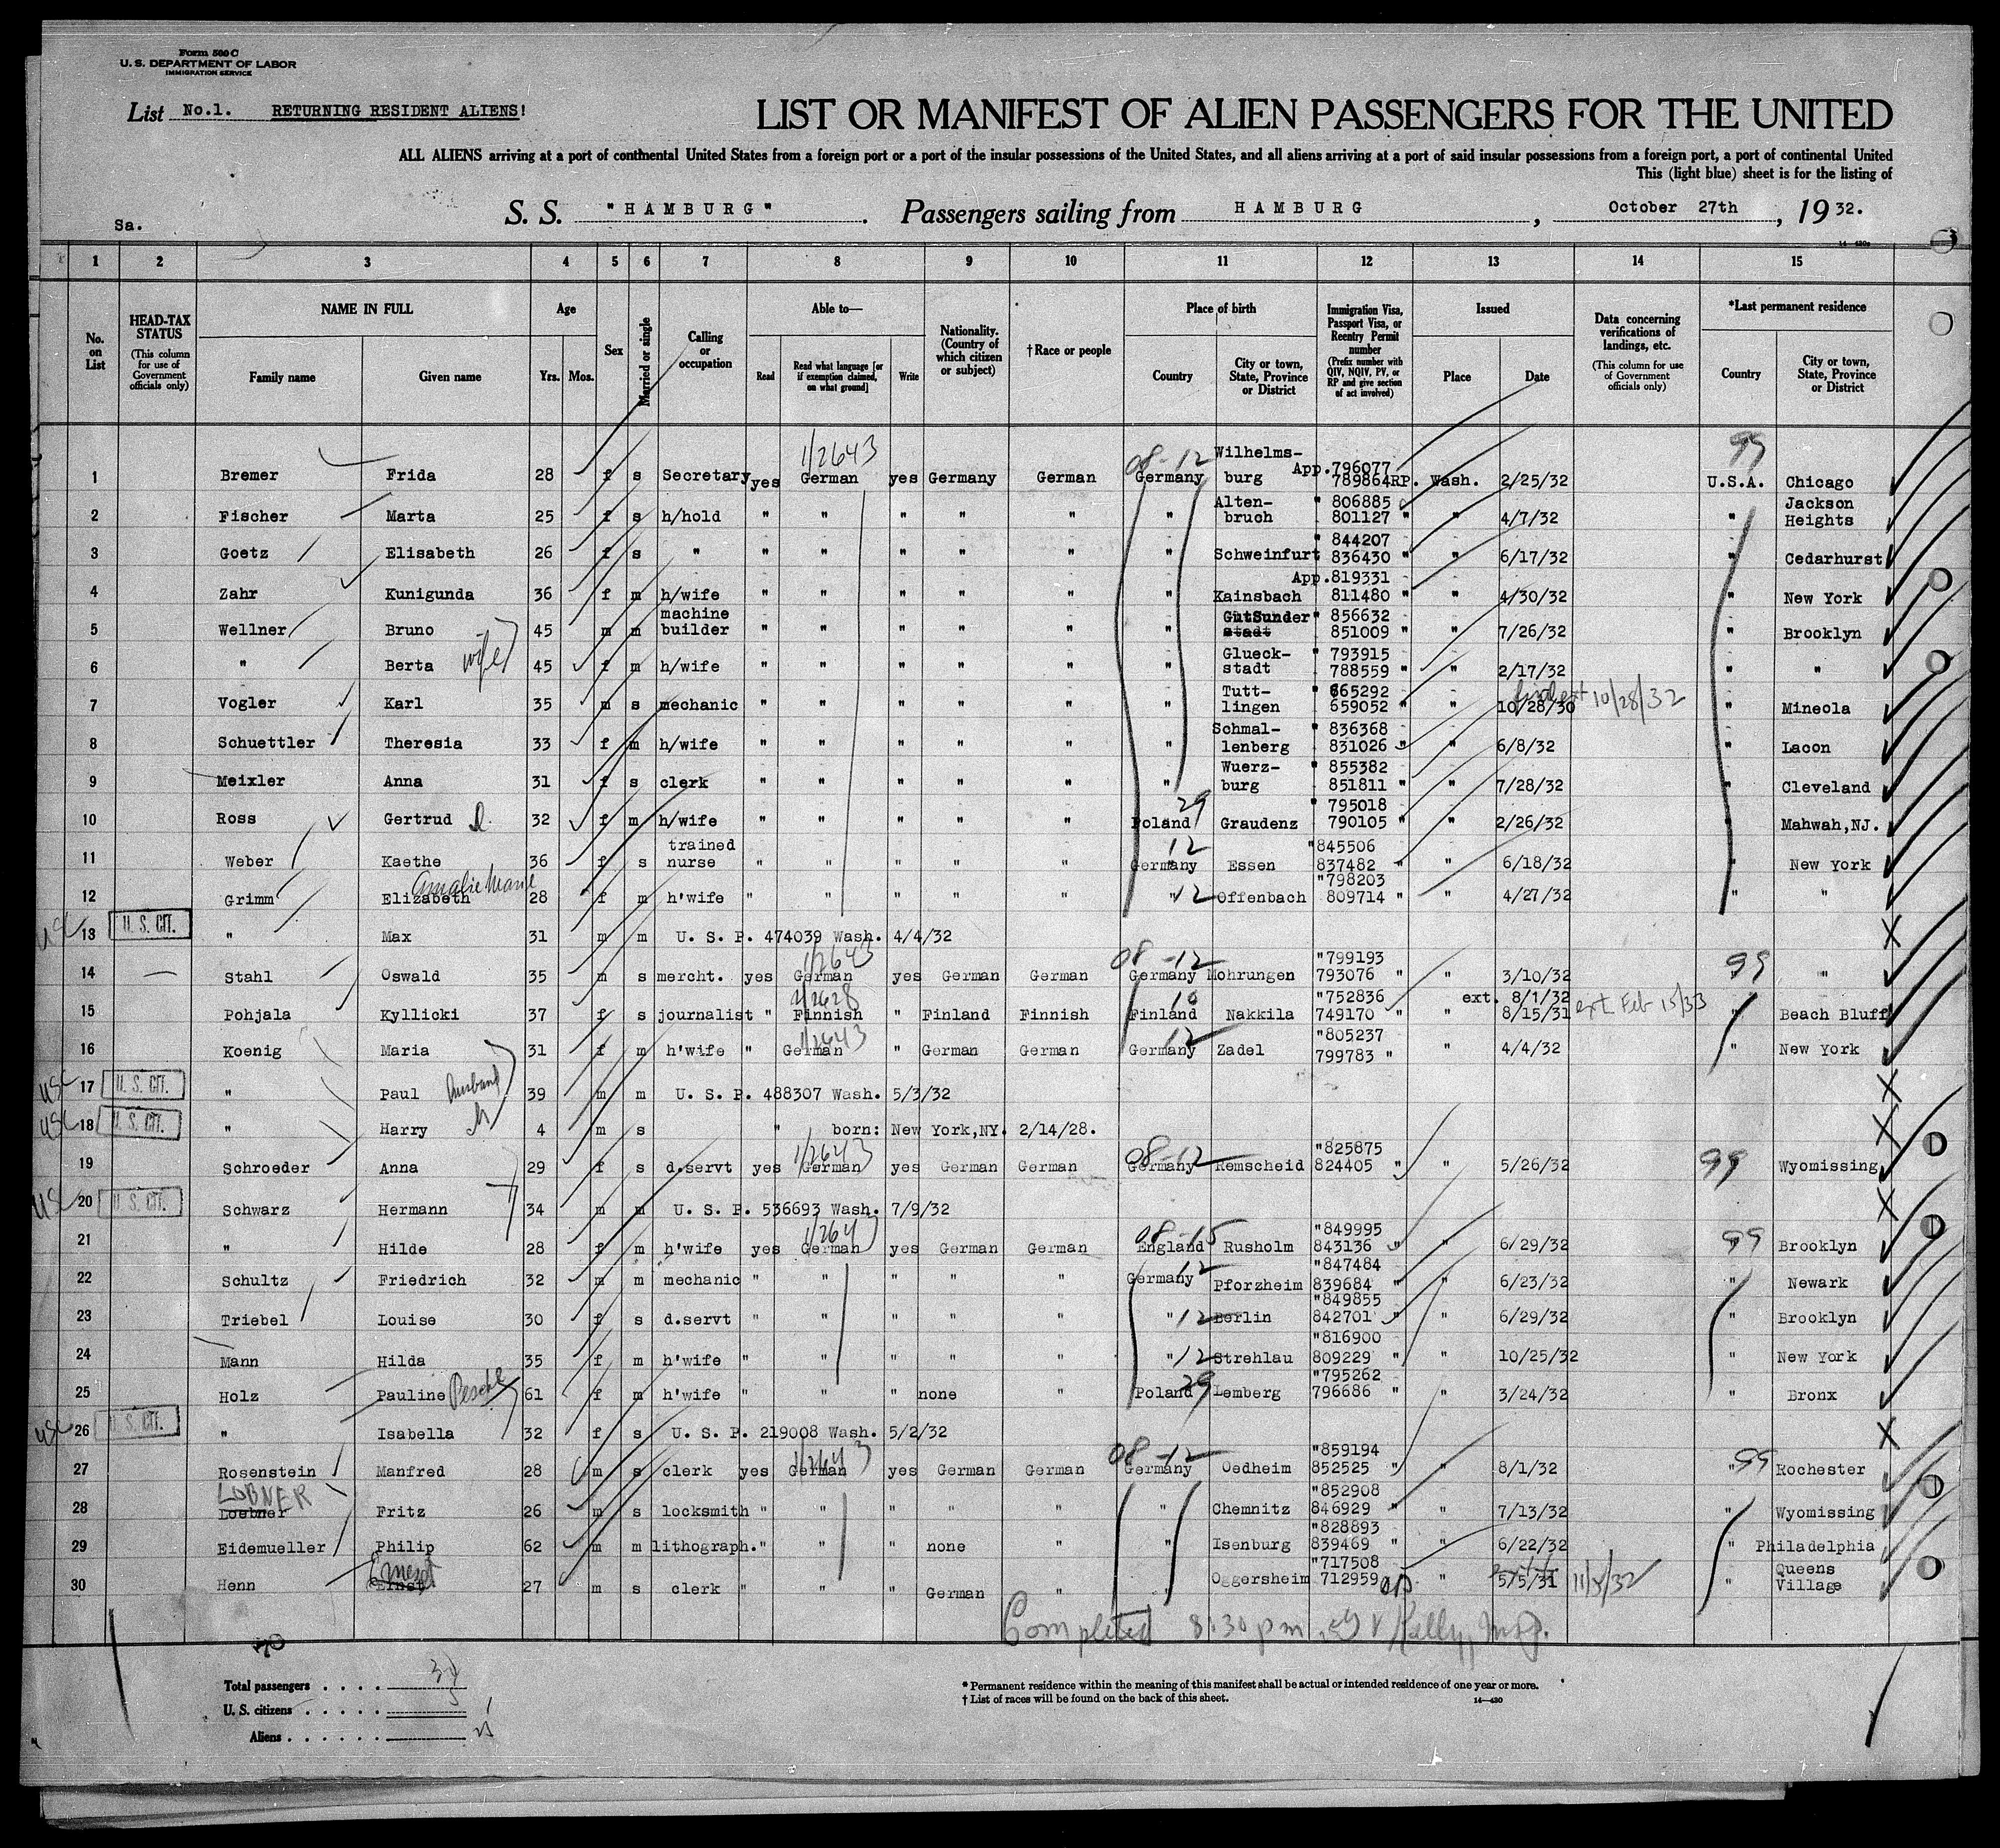 Form 500 C
U. S. DEPARTMENT OF LABOR
IMMIGRATION SERVICE
List No.1. RETURNING RESIDENT ALIENS!
LIST OR MANIFEST OF ALIEN PASSENGERS FOR THE UNITED
ALL ALIENS arriving at a port of continental United States from a foreign port or a port of the insular possessions of the United States, and all aliens arriving at a port of said insular possessions from a foreign port, a port of continental United
This (light blue) sheet is for the listing of
Sa. S. S. "HAMBURG". Passengers sailing from HAMBURG, October 27th, 1932.
14—420c
1 2 3 4 5 6 7 8 9 10 11 12 13 14 15
No. on List
HEAD-TAX STATUS (This column for use of Government officials only)
NAME IN FULL Family name Given name
Age Yrs. Mos.
Sex
Married or single
Calling or occupation
Able to— Read Read what language [or if exemption claimed, on what ground] Write
Nationality. (Country of which citizen or subject)
†Race or people
Place of birth Country City or town, State, Province or District
Immigration Visa, Passport Visa, or Reentry Permit number (Prefix number with QIV, NQIV, PV, or RP and give section of act involved)
Issued Place Date
Data concerning verifications of landings, etc. (This column for use of Government officials only)
*Last permanent residence Country City or town, State, Province or District
1/2643 08-12 Wilhelms- 99
1 Bremer Frida 28 f s Secretary yes German yes Germany German Germany burg App.796077 789864RP. Wash. 2/25/32 U.S.A. Chicago
2 Fischer Marta 25 f s h/hold " " " " " " Alten-bruch " 806885 801127 " " 4/7/32 " Jackson Heights
3 Goetz Elisabeth 26 f s " " " " " " " Schweinfurt " 844207 836430 " " 6/17/32 " Cedarhurst
4 Zahr Kunigunda 36 f m h/wife " " " " " " Kainsbach App.819331 811480 " " 4/30/32 " New York
5 Wellner Bruno 45 m m machine builder " " " " " " GutSunder stadt " 856632 851009 " " 7/26/32 " Brooklyn
6 " Berta wife 45 f m h/wife " " " " " " Glueck-stadt " 793915 788559 " " 2/17/32 " "
7 Vogler Karl 35 m s mechanic " " " " " " Tutt-lingen " 665292 659052 " " 10/28/30 10/28/32 " Mineola
8 Schuettler Theresia 33 f m h/wife " " " " " " Schmal-lenberg " 836368 831026 " " 6/8/32 " Lacon
9 Meixler Anna 31 f s clerk " " " " " " Wuerz-burg " 855382 851811 " " 7/28/32 " Cleveland
10 Ross Gertrud 32 f m h/wife " " " " " Poland 29 Graudenz " 795018 790105 " " 2/26/32 " Mahwah,NJ.
11 Weber Kaethe 36 f s trained nurse " " " " " Germany 12 Essen "845506 837482 " " 6/18/32 " New York
12 Grimm Elizabeth Amalie Marie 28 f m h'wife " " " " " " 12 Offenbach "798203 809714 " " 4/27/32 " "
USC 13 U. S. CIT. " Max 31 m m U. S. P. 474039 Wash. 4/4/32
14 Stahl Oswald 35 m s mercht. yes German 1/2643 yes German German Germany 08-12 Mohrungen "799193 793076 " " 3/10/32 99 "
15 Pohjala Kyllicki 37 f s journalist " Finnish 2/2628 " Finland Finnish Finland 10 Nakkila "752836 749170 " ext. 8/1/32 " 8/15/31 ext Feb 15/33 " Beach Bluff
16 Koenig Maria 31 f m h'wife " German 1/2643 " German German Germany 12 Zadel "805237 799783 " " 4/4/32 " New York
USC 17 U. S. CIT. " Paul husband 39 m m U. S. P. 488307 Wash. 5/3/32
USC 18 U. S. CIT. " Harry 4 m s " born: New York,NY. 2/14/28.
19 Schroeder Anna 29 f s d.servt yes German 1/2643 yes German German Germany 08-12 Remscheid "825875 824405 " " 5/26/32 99 Wyomissing
USC 20 U. S. CIT. Schwarz Hermann 34 m m U. S. P. 536693 Wash. 7/9/32
21 " Hilde 28 f m h'wife yes German 1/2643 yes German German England 08-15 Rusholm "849995 843136 " " 6/29/32 99 Brooklyn
22 Schultz Friedrich 32 m m mechanic " " " " " Germany 12 Pforzheim "847484 839684 " " 6/23/32 " Newark
23 Triebel Louise 30 f s d.servt " " " " " " 12 Berlin "849855 842701 " " 6/29/32 " Brooklyn
24 Mann Hilda 35 f m h'wife " " " " " " 12 Strehlau "816900 809229 " " 10/25/32 " New York
25 Holz Pauline 61 f m h'wife " " " none " Poland 29 Lemberg "795262 796686 " " 3/24/32 " Bronx
USC 26 U. S. CIT. " Isabella 32 f s U. S. P. 219008 Wash. 5/2/32
27 Rosenstein Manfred 28 m s clerk yes German 1/2643 yes German German Germany 08-12 Oedheim "859194 852525 " " 8/1/32 " 99 Rochester
28 LOBNER Loebner Fritz 26 m s locksmith " " " " " " Chemnitz "852908 846929 " " 7/13/32 " Wyomissing
29 Eidemueller Philip 62 m m lithograph. " " " none " " Isenburg "828893 839469 " " 6/22/32 " Philadelphia
30 Henn Ernest Ernst 27 m s clerk " " " German " " Oggersheim "717508 712959 " 5/5/31 11/5/32 " Queens Village
Completed 8:30 pm Kelly, Insp.
Total passengers . . . .
U. S. citizens . . . . . 5
Aliens . . . . . . 25
* Permanent residence within the meaning of this manifest shall be actual or intended residence of one year or more.
† List of races will be found on the back of this sheet. 14—420